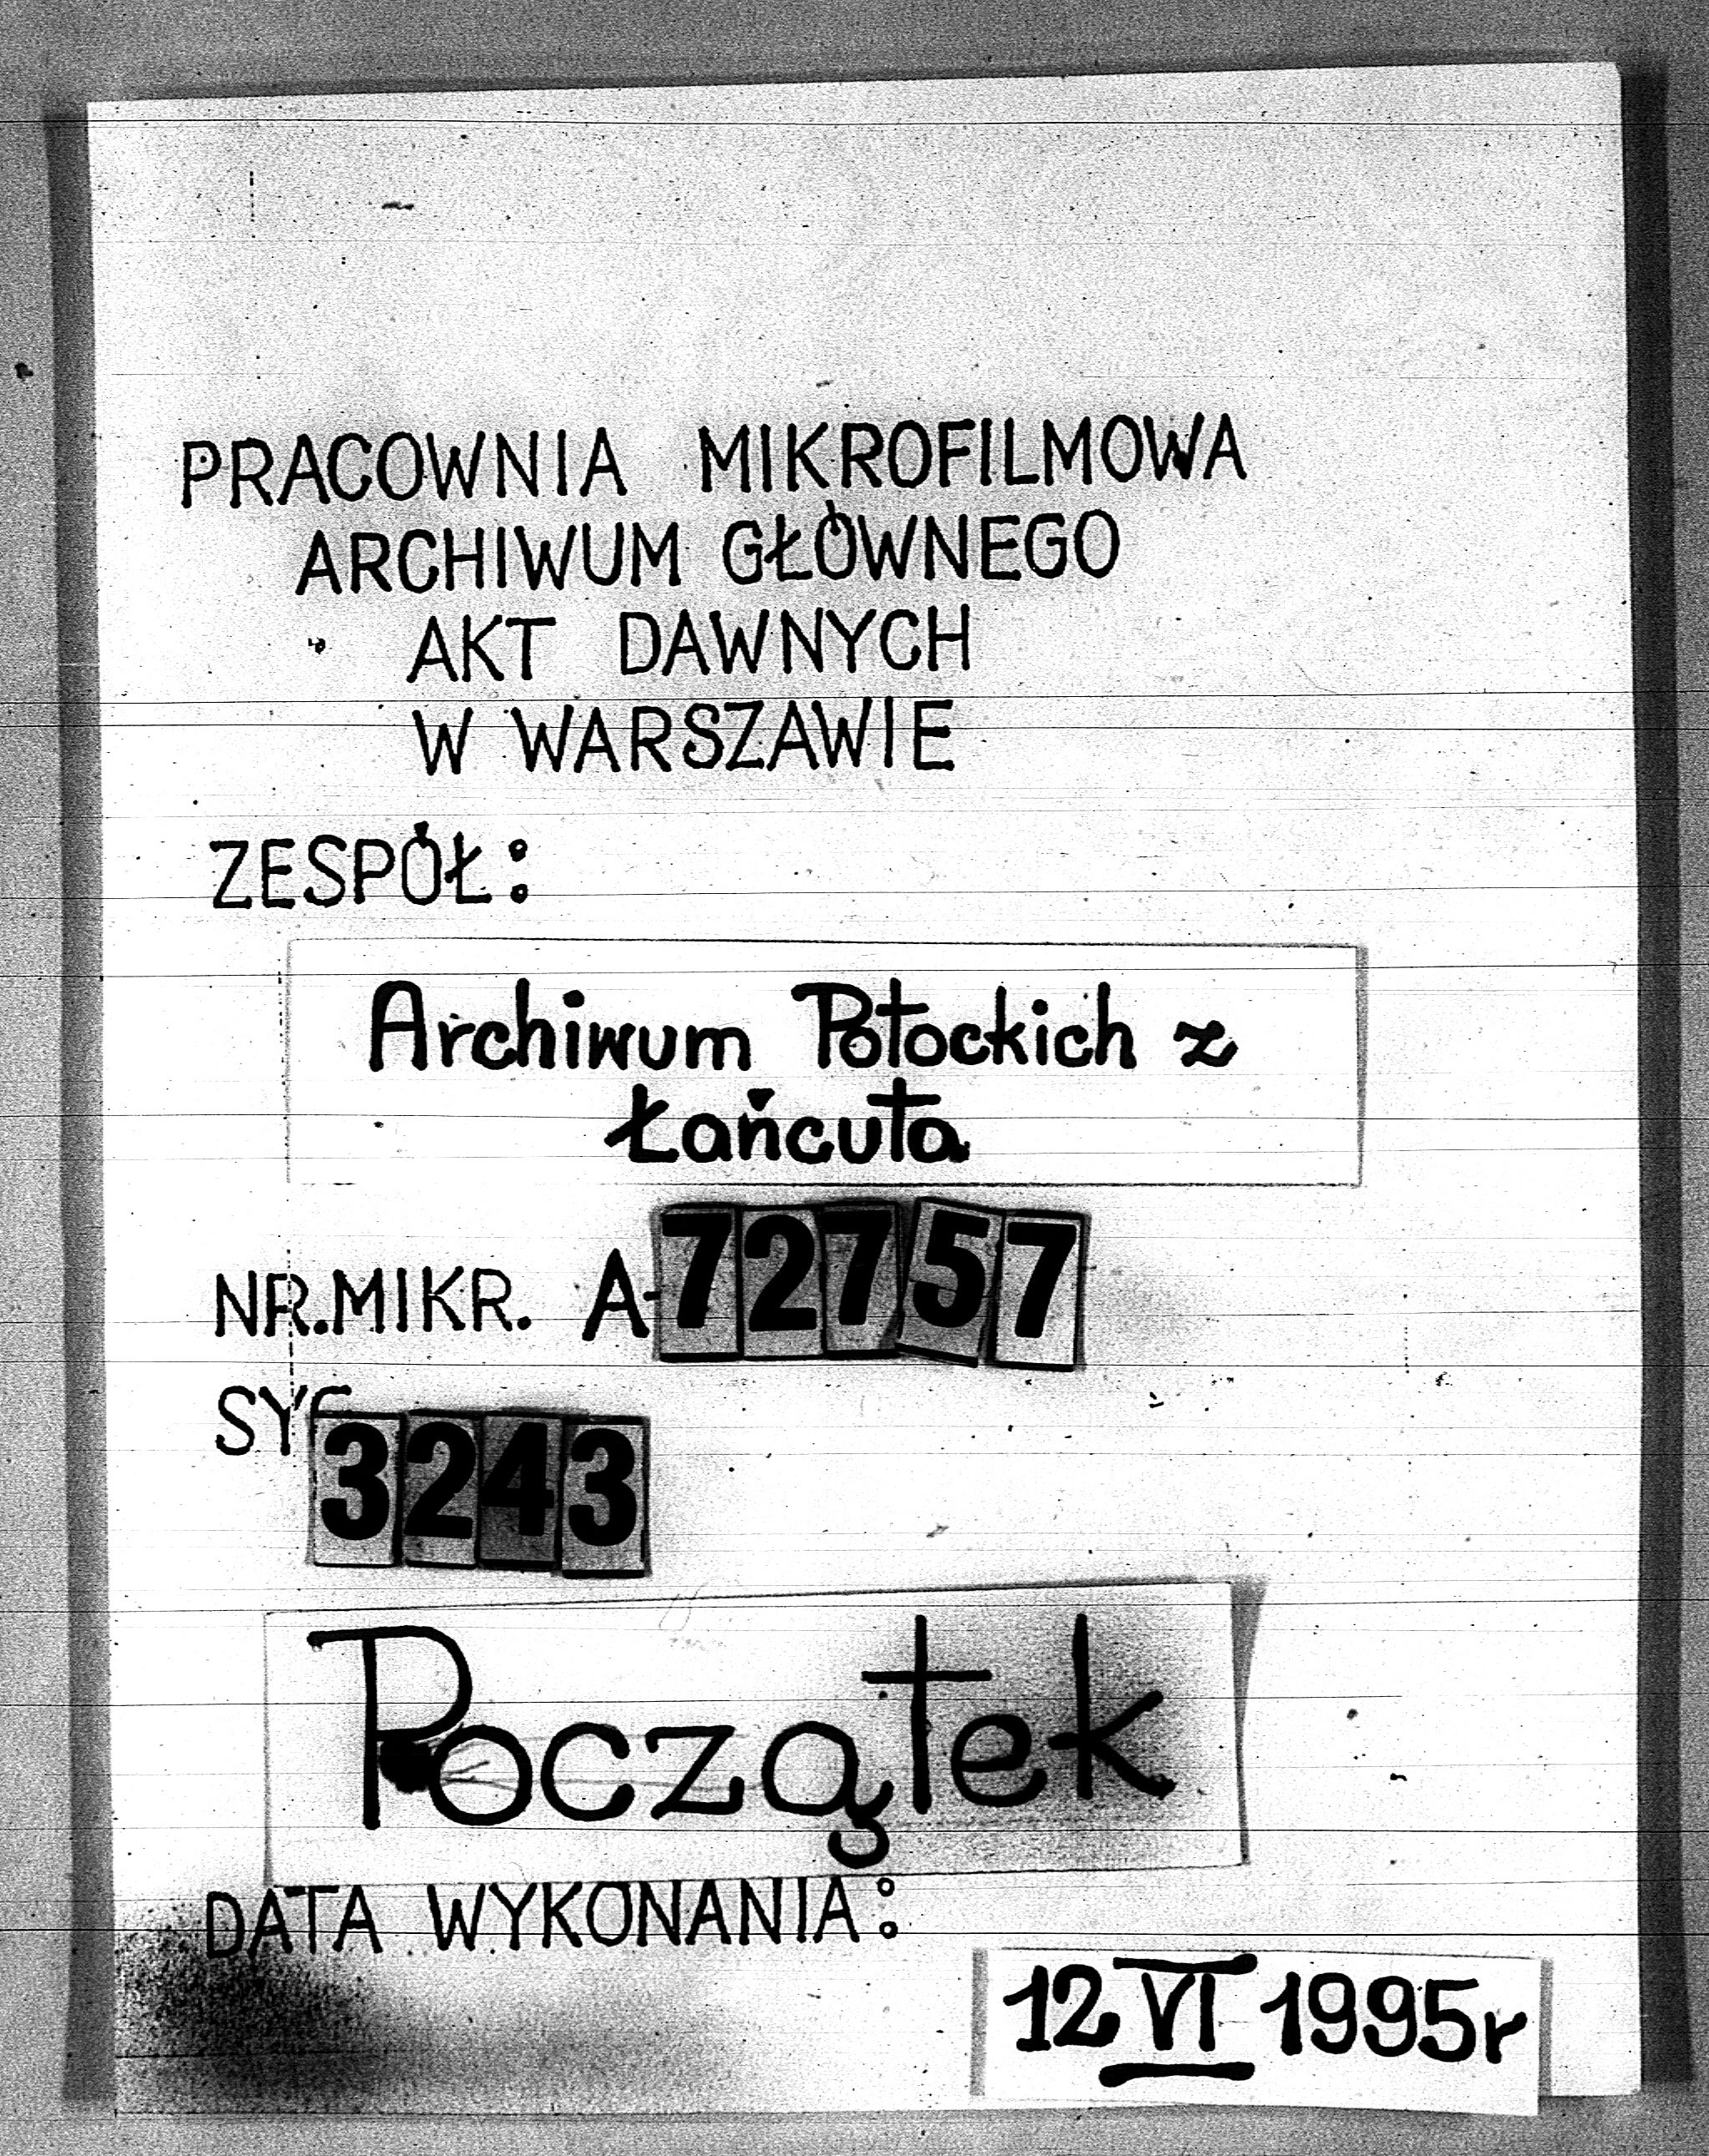 PRACOWNIA MIKROFILMOWA
ARCHIWUM GŁÓWNEGO
AKT DAWNYCH
W WARSZAWIE
ZESPÓŁ:
Archiwum Potockich z
Łańcuta
NR.MIKR. A-72757
SYG 3243
Początek
DATA WYKONANIA:
12 VI 1995r